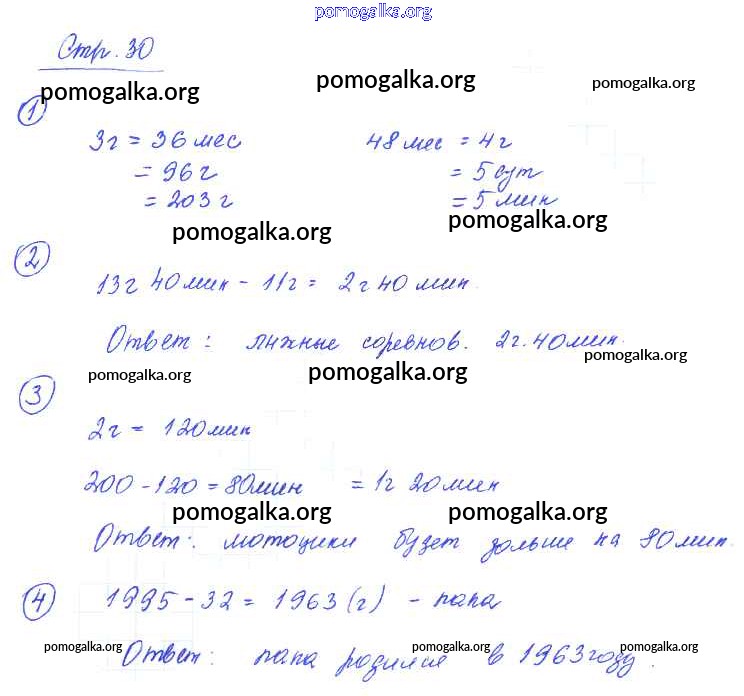 pomogalka.org
Стр. 30
pomogalka.org pomogalka.org pomogalka.org
1
3г = 36 мес 48 мес = 4г
= 96г = 5 сут
= 203г = 5 мин
pomogalka.org pomogalka.org
2
13г 40 мин - 11г = 2г 40 мин.
Ответ: лыжные соревнов. 2г. 40 мин.
pomogalka.org pomogalka.org pomogalka.org
3
2г = 120 мин
200 - 120 = 80 мин = 1г 20 мин
pomogalka.org pomogalka.org
Ответ: мотоцикл будет дольше на 80 мин.
4 1995 - 32 = 1963 (г) - папа
pomogalka.org pomogalka.org pomogalka.org pomogalka.org
Ответ: папа родился в 1963 году.